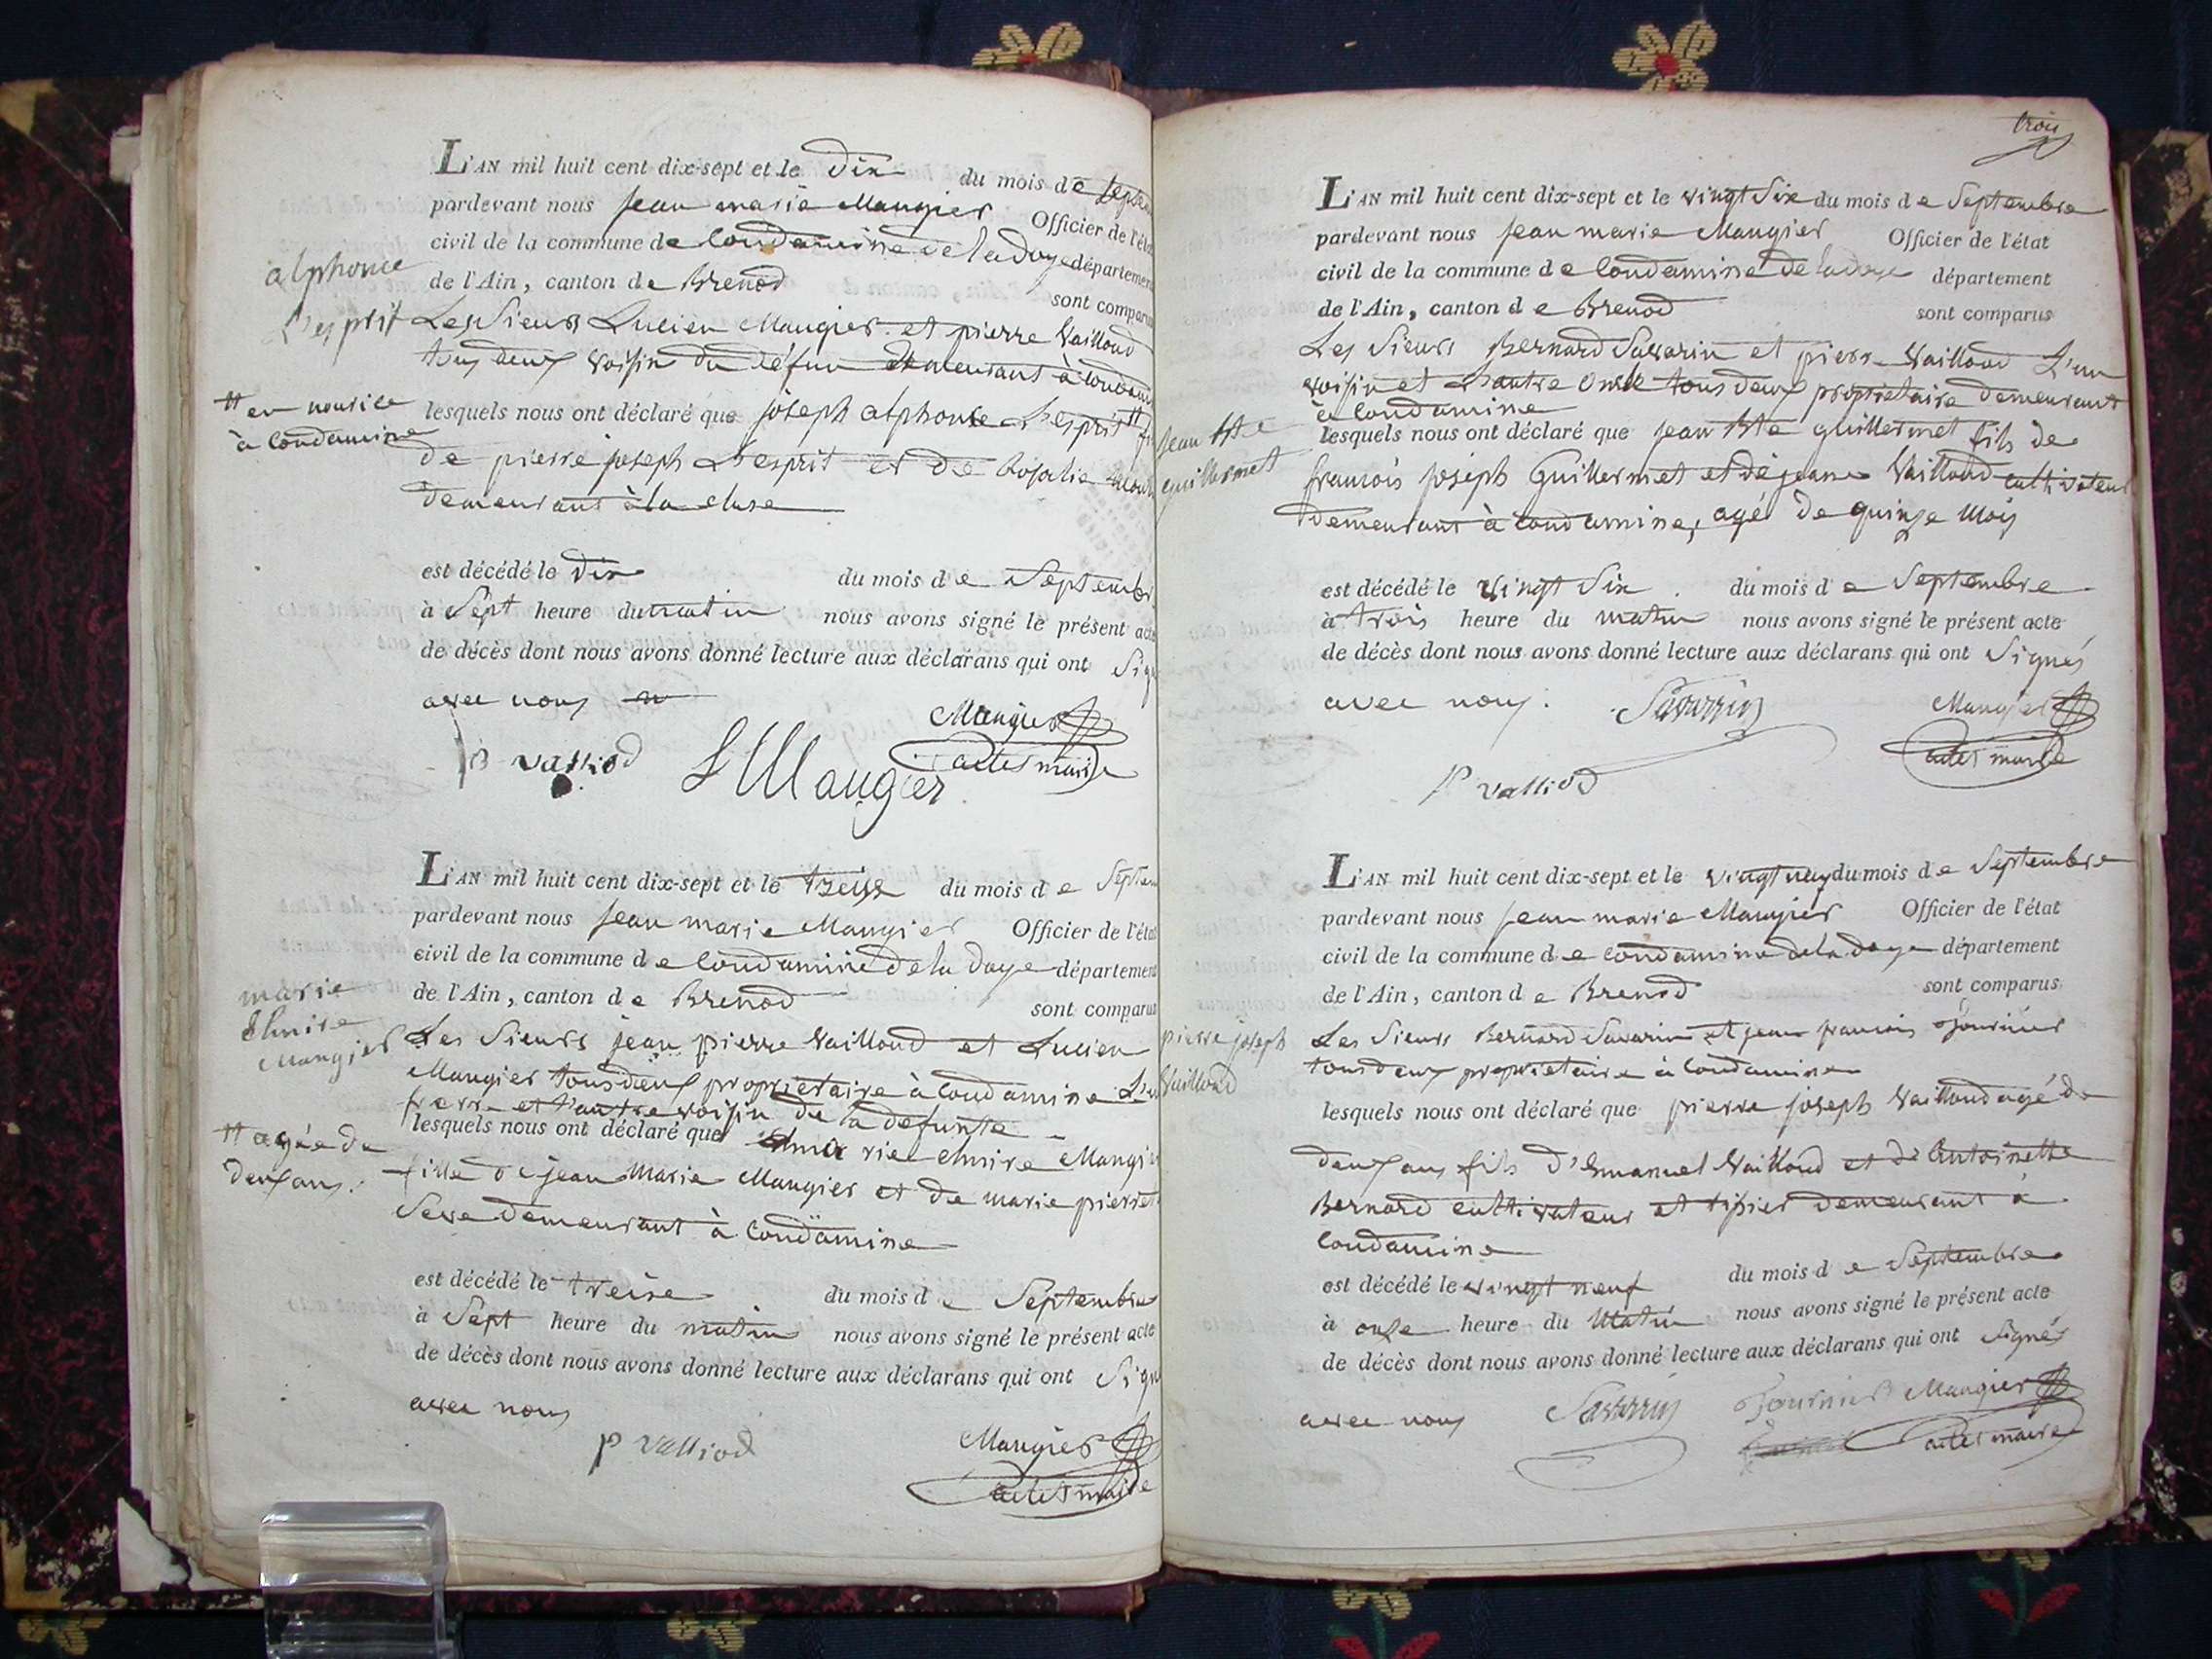 L'AN mil huit cent dix-sept et le dix du mois de
pardevant nous jean marie Maugier Officier de l'état
civil de la commune de Condamine de la doye département
de l'Ain, canton de Brenod sont comparus
alphonce
L'esprit
Les Sieurs Lucien Maugier et pierre Vailloud
tous deux voisin du défun demeurant à
lesquels nous ont déclaré que joseph alphonse L'esprit
en nourice
à Condamine
de pierre joseph L'esprit et de Rosalie
demeurant à la cluse
est décédé le dix du mois de Septembre
à Sept heure du matin nous avons signé le présent acte
de décès dont nous avons donné lecture aux déclarans qui ont
avec nous
Maugier
p valliod L Maugier maire
L'AN mil huit cent dix-sept et le treise du mois de
pardevant nous jean marie Maugier Officier de l'état
civil de la commune de Condamine de la doye département
de l'Ain, canton de Brenod sont comparus
marie
Elmire
Maugier
Les Sieurs jean pierre Vailloud et Lucien
Maugier tous deux proprietaire à Condamine
frere et l'autre voisin de la defunte
lesquels nous ont déclaré que marie elmire
agée de
deux ans
fille de jean Marie Maugier et de marie
Seve demeurant à Condamine
est décédé le treise du mois de Septembre
à Sept heure du matin nous avons signé le présent acte
de décès dont nous avons donné lecture aux déclarans qui ont
avec nous
p valliod Maugier
maire
trois
L'AN mil huit cent dix-sept et le vingt Six du mois de Septembre
pardevant nous jean marie Maugier Officier de l'état
civil de la commune de Condamine de la doye département
de l'Ain, canton de Brenod sont comparus
Les Sieurs Bernard Savarin et pierre Vailloud L'un
voisin et L'autre oncle tous deux proprietaire demeurant
à Condamine
jean Bte
guillermet
lesquels nous ont déclaré que jean Bte guillermet fils de
francois joseph Guillermet et de jeane Vailloud cultivateur
demeurant à Condamine, agé de quinze Mois
est décédé le vingt Six du mois de Septembre
à trois heure du matin nous avons signé le présent acte
de décès dont nous avons donné lecture aux déclarans qui ont Signés
avec nous. Savarin Maugier
maire
p valliod
L'AN mil huit cent dix-sept et le du mois de Septembre
pardevant nous jean marie Maugier Officier de l'état
civil de la commune de Condamine de la doye département
de l'Ain, canton de Brenod sont comparus
pierre joseph
Vailloud
Les Sieurs Bernard Savarin et jean francois
tous deux proprietaire à Condamine
lesquels nous ont déclaré que pierre joseph Vailloud agé de
deux ans fils d'Emanuel Vailloud et d'Antoinette
Bernard cultivateur et demeurant à
Condamine
est décédé le vingt neuf du mois de Septembre
à onze heure du Matin nous avons signé le présent acte
de décès dont nous avons donné lecture aux déclarans qui ont Signés
avec nous Savarin fournier Maugier
maire